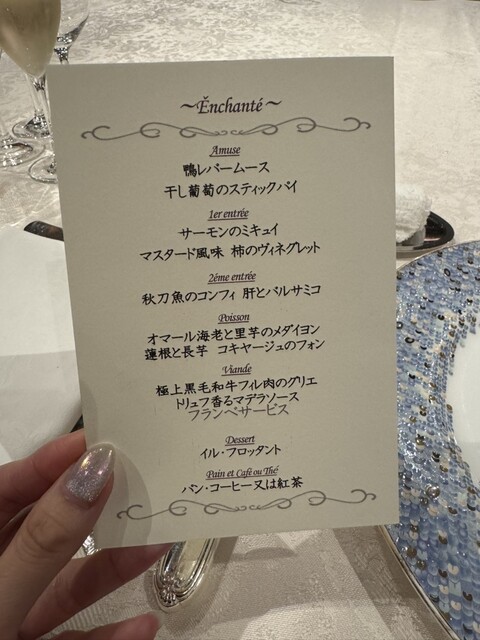 ～Ěnchanté～
Amuse
鴨レバームース
干し葡萄のスティックパイ
1er entrée
サーモンのミキュイ
マスタード風味 柿のヴィネグレット
2éme entrée
秋刀魚のコンフィ 肝とバルサミコ
Poisson
オマール海老と里芋のメダイヨン
蓮根と長芋 コキヤージュのフォン
Viande
極上黒毛和牛フィレ肉のグリエ
トリュフ香るマデラソース
フランベサービス
Dessert
イル・フロッタント
Pain et Café ou Thé
パン・コーヒー又は紅茶